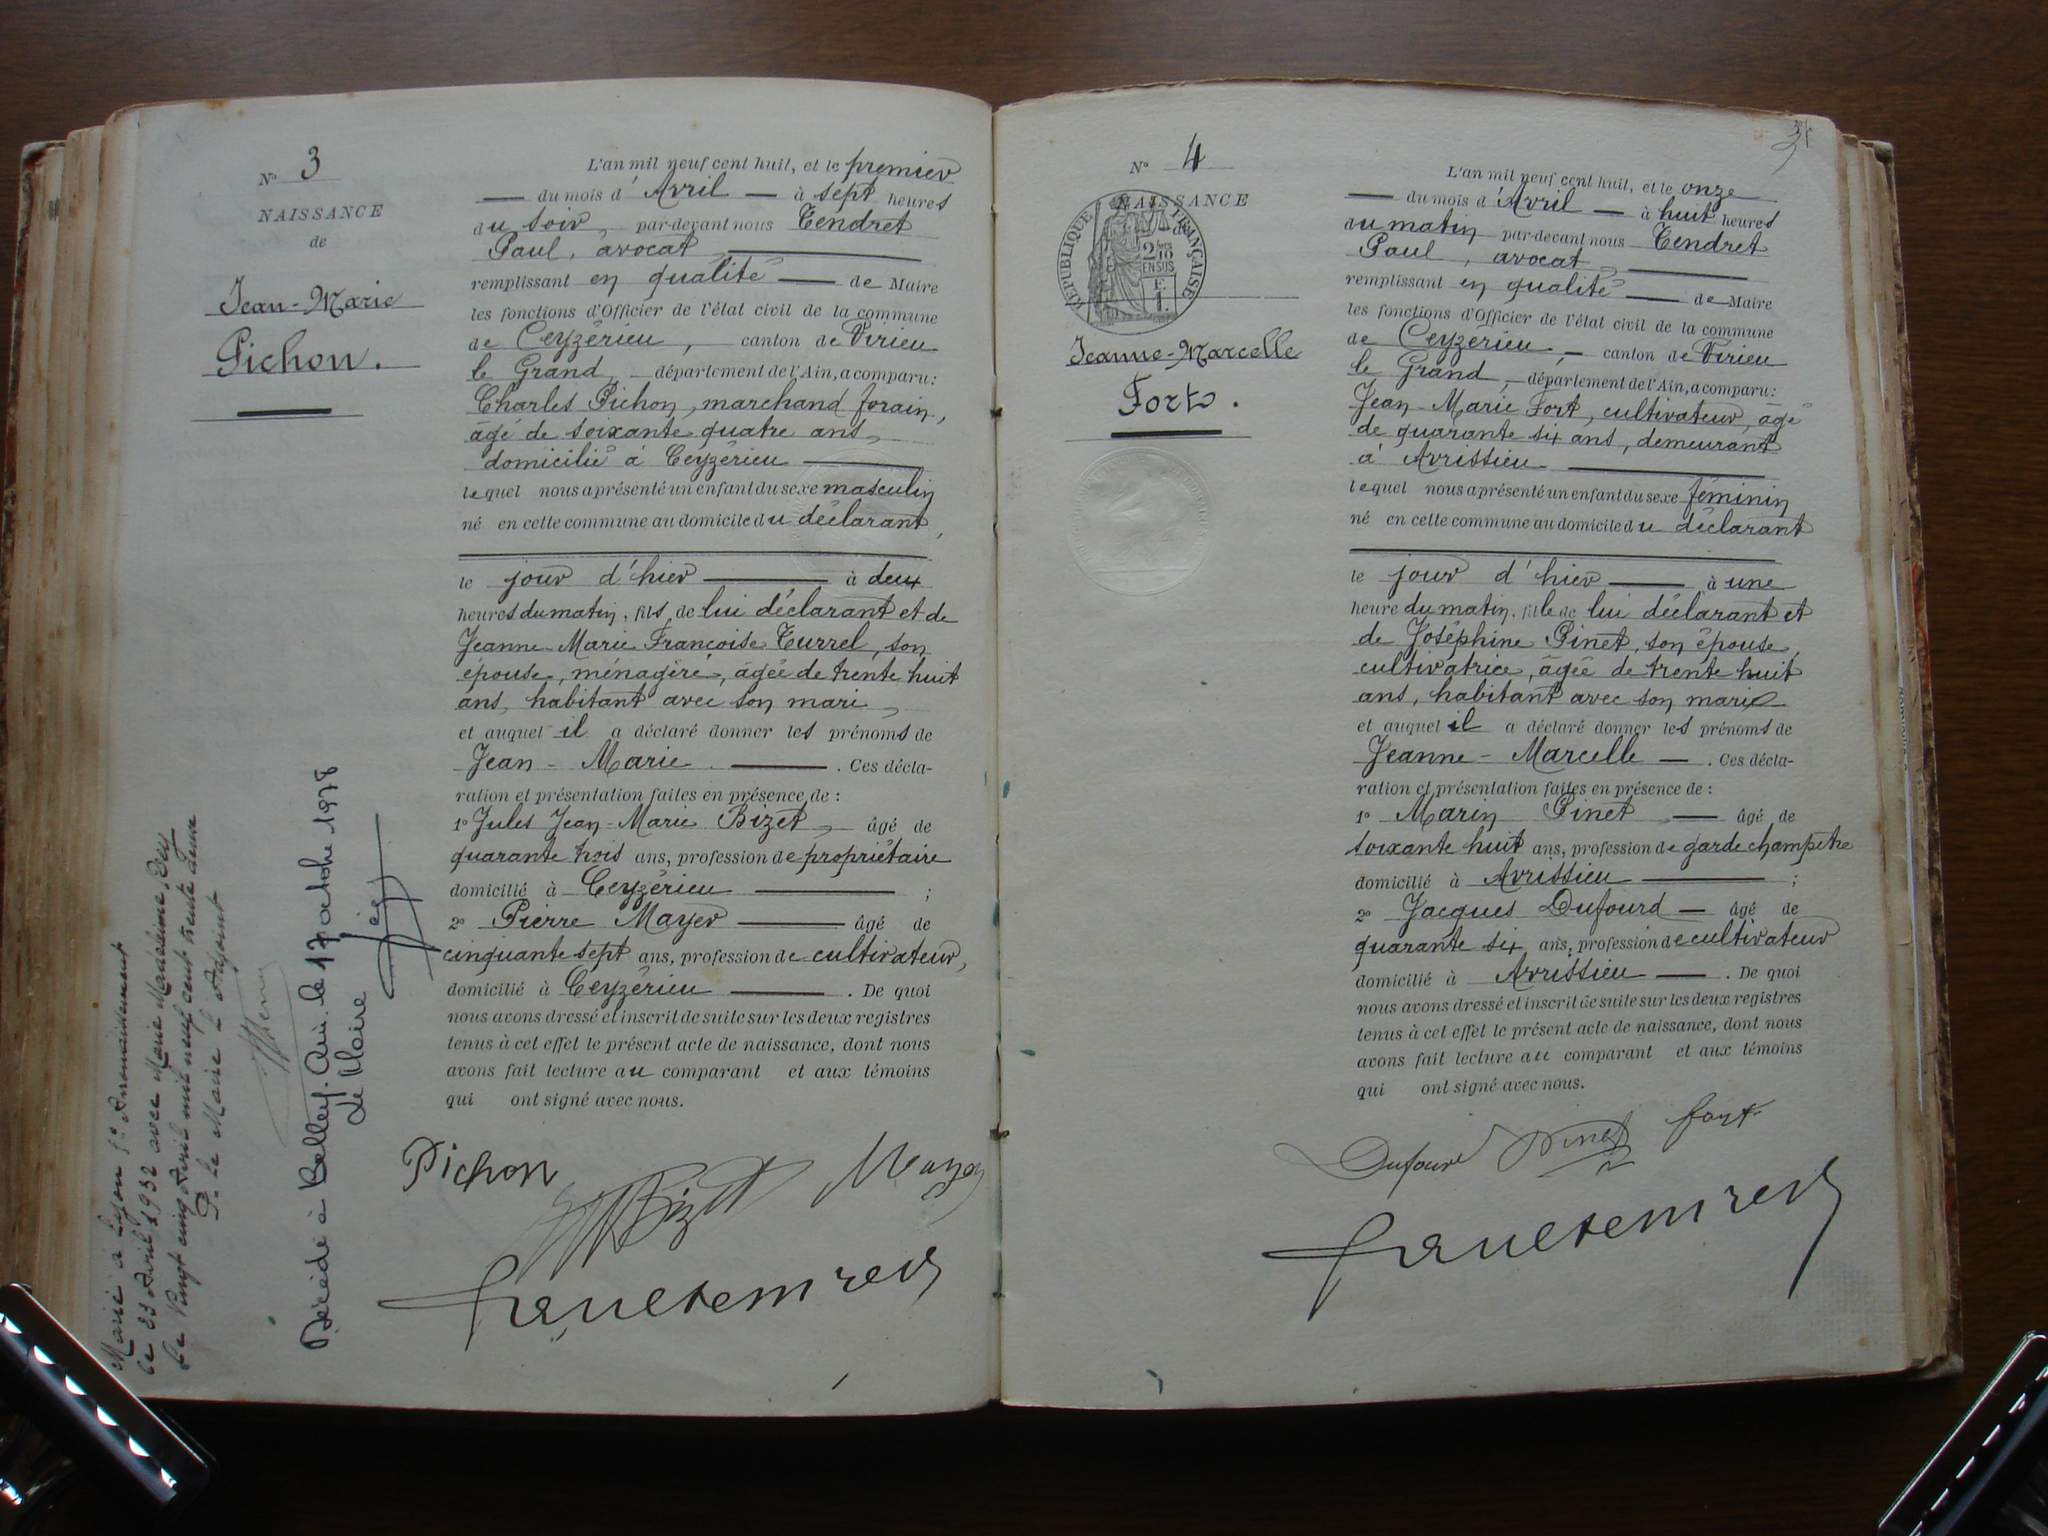 N° 3
NAISSANCE
de
Jean-Marie
Pichon.
L'an mil neuf cent huit, et le premier
du mois d'Avril à sept heures
du soir, par-devant nous Tendret
Paul, avocat
remplissant en qualité de Maire
les fonctions d'Officier de l'état civil de la commune
de Ceyzérieu, canton de Virieu
le Grand, département de l'Ain, a comparu:
Charles Pichon, marchand forain,
âgé de soixante quatre ans,
domicilié à Ceyzérieu
lequel nous a présenté un enfant du sexe masculin
né en cette commune au domicile du déclarant,
le jour d'hier à deux
heures du matin, fils de lui déclarant et de
Jeanne-Marie Françoise Turrel, son
épouse, ménagère, âgée de trente huit
ans, habitant avec son mari,
et auquel il a déclaré donner les prénoms de
Jean-Marie. Ces décla-
ration et présentation faites en présence de :
1° Jules Jean-Marie Bizet, âgé de
quarante trois ans, profession de propriétaire
domicilié à Ceyzérieu ;
2° Pierre Mayer âgé de
cinquante sept ans, profession de cultivateur,
domicilié à Ceyzérieu. De quoi
nous avons dressé et inscrit de suite sur les deux registres
tenus à cet effet le présent acte de naissance, dont nous
avons fait lecture au comparant et aux témoins
qui ont signé avec nous.
Pichon
Bizet Mayer
Marié à Lyon 5e Arrondissement
le 23 Avril 1932 avec Marie Madeleine
le Vingt cinq Avril mil neuf cent trente deux
P. le Maire L'Adjoint
Décédé à Belley. Ain. le 17 octobre 1978
Le Maire
N° 4
NAISSANCE
RÉPUBLIQUE FRANÇAISE
2/10
EN SUS
F.
1.
Jeanne-Marcelle
Fort.
L'an mil neuf cent huit, et le onze
du mois d'Avril à huit heures
du matin par-devant nous Tendret
Paul, avocat
remplissant en qualité de Maire
les fonctions d'Officier de l'état civil de la commune
de Ceyzérieu, canton de Virieu
le Grand, département de l'Ain, a comparu:
Jean-Marie Fort, cultivateur, âgé
de quarante six ans, demeurant
à Avrissieu
lequel nous a présenté un enfant du sexe féminin
né en cette commune au domicile du déclarant
le jour d'hier à une
heure du matin, fille de lui déclarant et
de Joséphine Pinet, son épouse,
cultivatrice, âgée de trente huit
ans, habitant avec son mari
et auquel il a déclaré donner les prénoms de
Jeanne-Marcelle. Ces décla-
ration et présentation faites en présence de :
1° Marin Pinet, âgé de
soixante huit ans, profession de garde champêtre
domicilié à Avrissieu ;
2° Jacques Dufourd âgé de
quarante six ans, profession de cultivateur
domicilié à Avrissieu. De quoi
nous avons dressé et inscrit de suite sur les deux registres
tenus à cet effet le présent acte de naissance, dont nous
avons fait lecture au comparant et aux témoins
qui ont signé avec nous.
Dufour Pinet fort